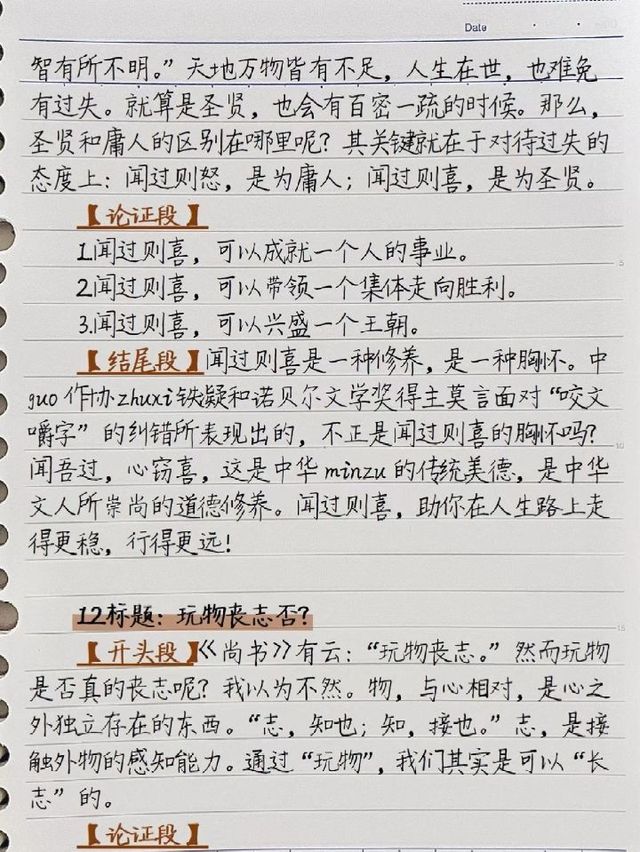 Date
智有所不明。”天地万物皆有不足，人生在世，也难免
有过失。就算是圣贤，也会有百密一疏的时候。那么，
圣贤和庸人的区别在哪里呢？其关键就在于对待过失的
态度上：闻过则怒，是为庸人；闻过则喜，是为圣贤。
【论证段】
1.闻过则喜，可以成就一个人的事业。
2.闻过则喜，可以带领一个集体走向胜利。
3.闻过则喜，可以兴盛一个王朝。
【结尾段】闻过则喜是一种修养，是一种胸怀。中
guo作协zhuxi铁凝和诺贝尔文学奖得主莫言面对“咬文
嚼字”的纠错所表现出的，不正是闻过则喜的胸怀吗？
闻吾过，心窃喜，这是中华minzu的传统美德，是中华
文人所崇尚的道德修养。闻过则喜，助你在人生路上走
得更稳，行得更远！
12.标题：玩物丧志否？
【开头段】《尚书》有云：“玩物丧志。”然而玩物
是否真的丧志呢？我以为不然。物，与心相对，是心之
外独立存在的东西。“志，知也；知，接也。”志，是接
触外物的感知能力。通过“玩物”，我们其实是可以“长
志”的。
【论证段】